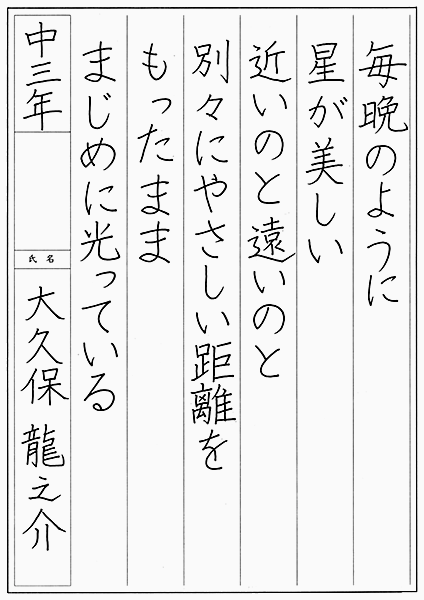 毎晩のように
星が美しい
近いのと遠いのと
別々にやさしい距離を
もったまま
まじめに光っている
中三年
氏名
大久保 龍之介